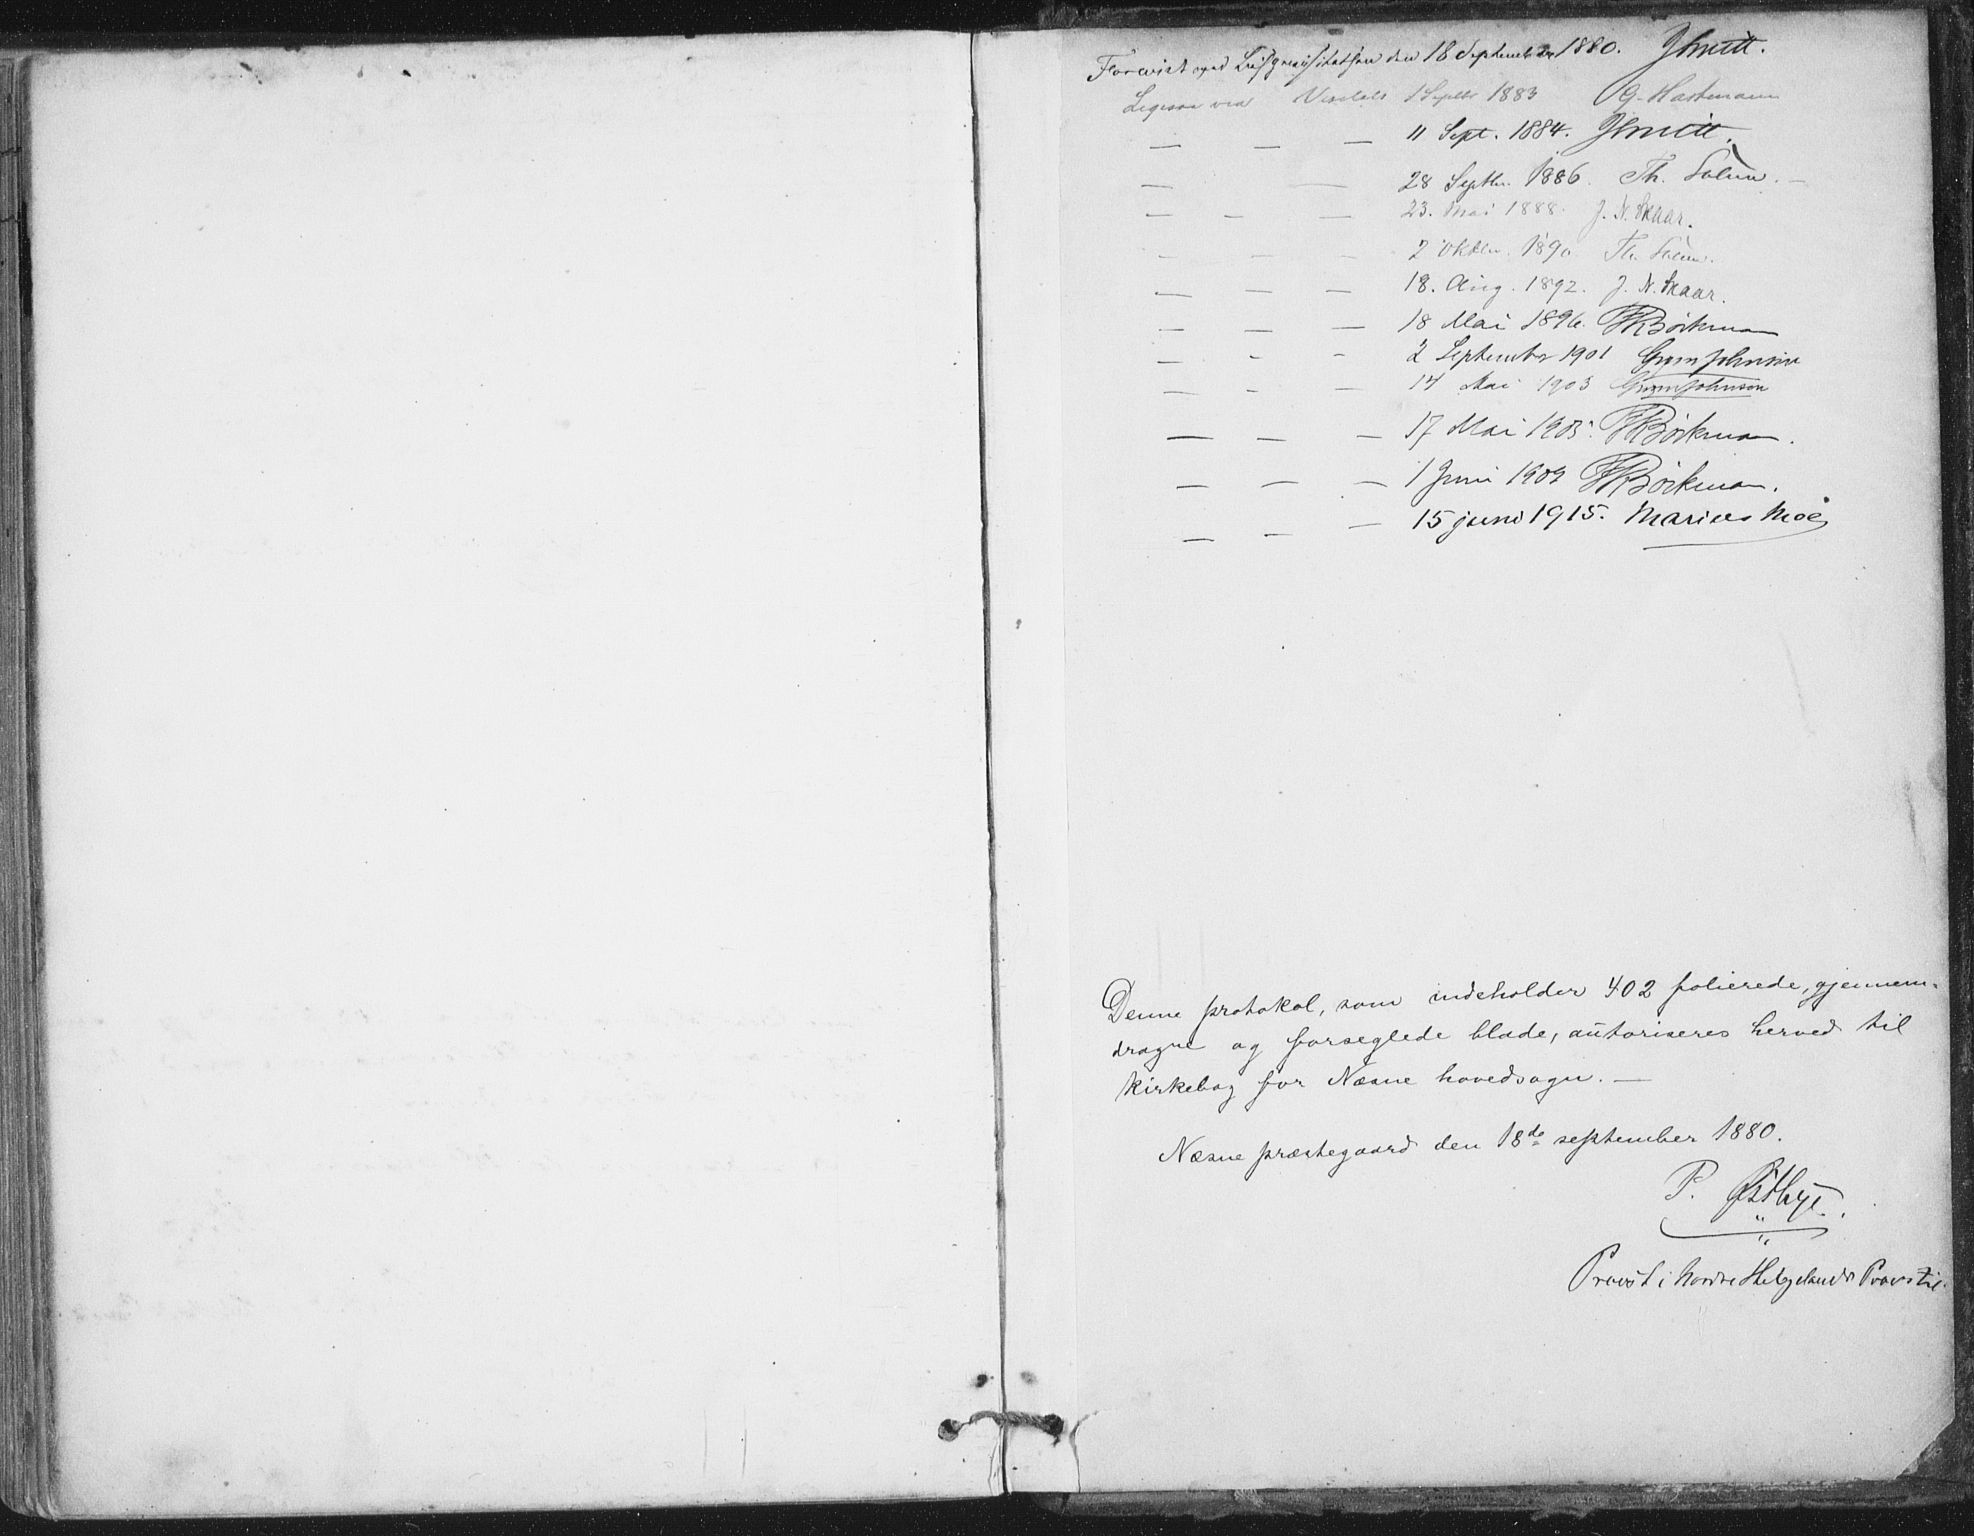 Forevist ved den 18 September 1880. JSmitt.
Ligesaa ved 1 Septbr 1883 G. Hartmann
— — — 11 Sept. 1884. JSmitt.
— — 28 Septbr. 1886. Th. Solum. —
— — — 23. Mai 1888. J. N. Skaar.
— — — 2 Oktbr. 1890. Th. Solum.
— — — 18. Aug. 1892. J. N. Skaar.
— — — 18 Mai 1896. Bøckman
— — — 2 September 1901 Grym Johnson
— — — 14 Mai 1903 Grym Johnson
— — — 17 Mai 1905. Bøckman.
— — — 1 Juni 1909 Bøckman.
— — — 15 juni 1915. Marius Moe
Denne protokol, som indeholder 402 folierede, gjennem-
dragne og forseglede blade, autoriseres herved til
kirkebog for Næsne hovedsogn. —
Næsne præstegaard den 18de september 1880.
P. Østbye.
Provst i Nordre Helgelands Provsti.